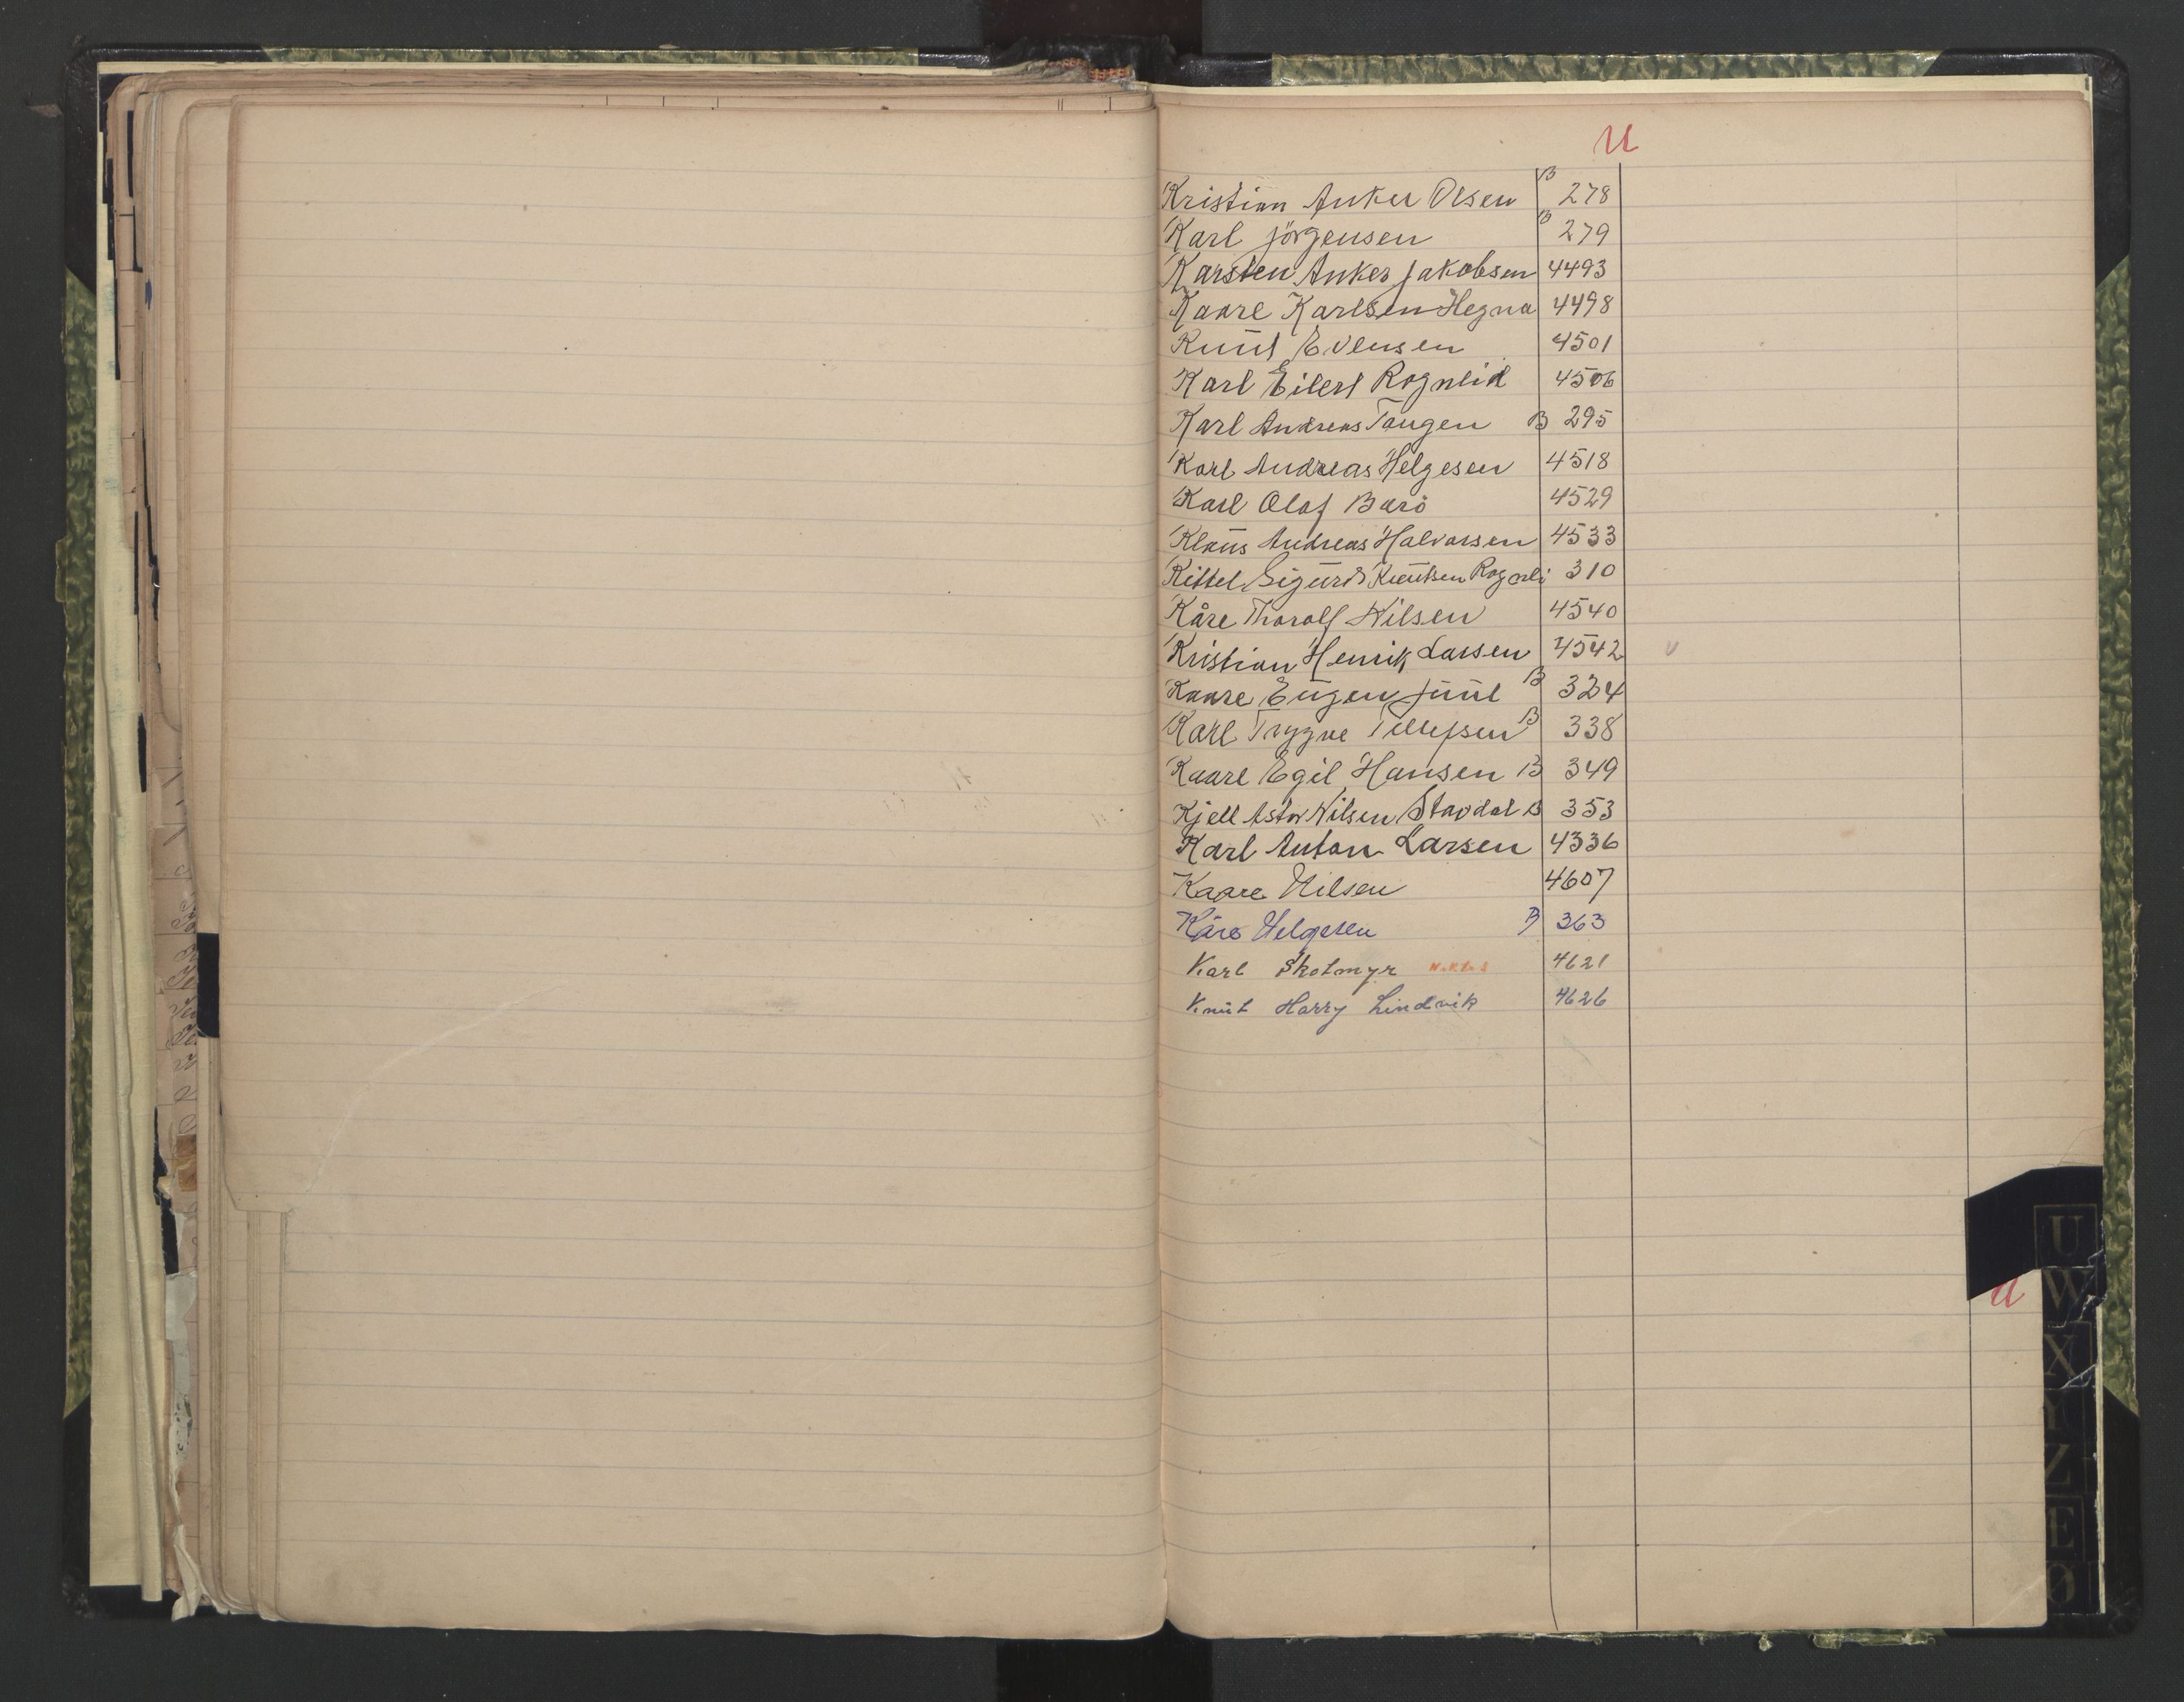 U
Kristian Anker Olsen B 278
Karl Jörgensen B 279
Karsten Anker Jakobsen 4493
Kaare Karlsen Hegna 4498
Knut Evensen 4501
Karl Eilert Rognlid 4506
Karl Andreas Tangen B 295
Karl Andreas Helgesen 4518
Karl Olaf Barö 4529
Klaus Andreas Halvorsen 4533
Kittel Sigurd Knutsen Rognli 310
Kåre Thoralf Nilsen 4540
Kristian Henrik Larsen 4542 v
Kaare Eugen Juul B 324
Karl Trygve Tellefsen B 338
Kaare Egil Hansen B 349
Kjell Astor Nilsen Stavdal B 353
Karl Anton Larsen 4336
Kaare Nilsen 4607
Kåre Helgesen B 363
Karl Skotmyr 4621
Knut Harry Lindvik 4626
U
W
U
X
Y
Z
Æ
Ø